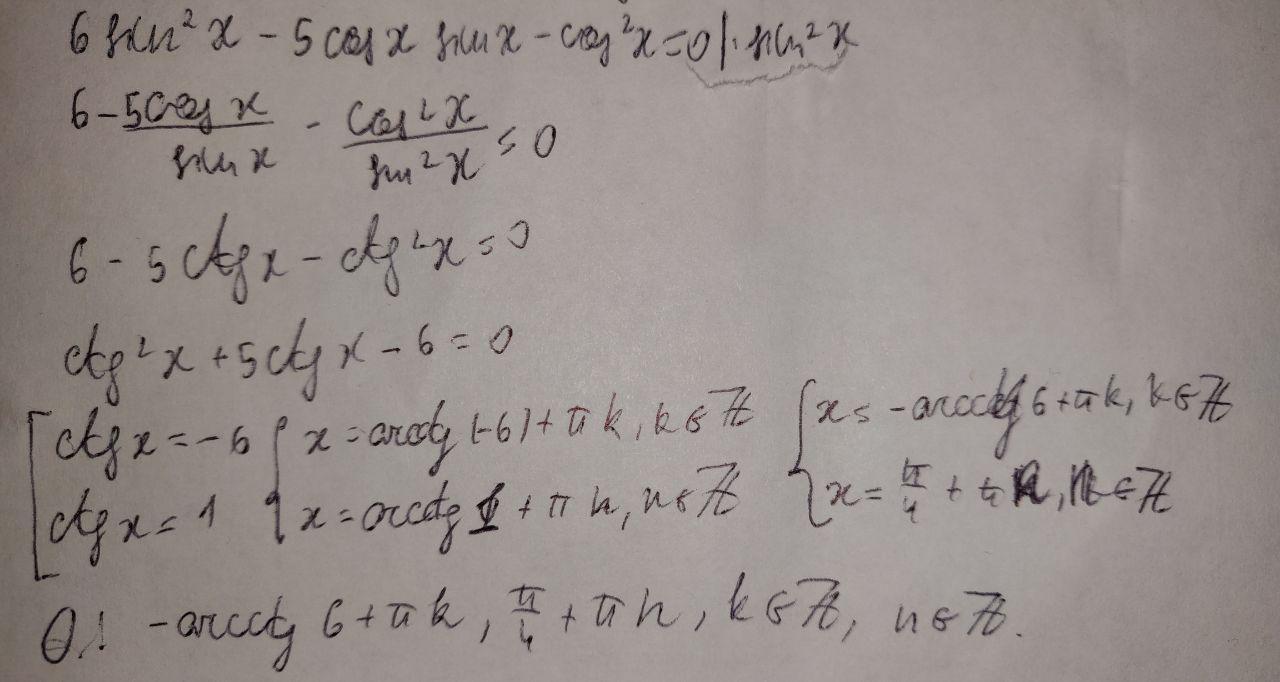 6 sin² x - 5 cos x sin x - cos² x = 0 | : sin² x
6 - 5cos x / sin x - cos² x / sin² x = 0
6 - 5 ctg x - ctg² x = 0
ctg² x + 5 ctg x - 6 = 0
[ ctg x = -6 { x = arcctg (-6) + πk, k ∈ ℤ { x = -arcctg 6 + πk, k ∈ ℤ
ctg x = 1 x = arcctg 1 + πn, n ∈ ℤ x = π/4 + πn, n ∈ ℤ
O: -arcctg 6 + πk, π/4 + πn, k ∈ ℤ, n ∈ ℤ.